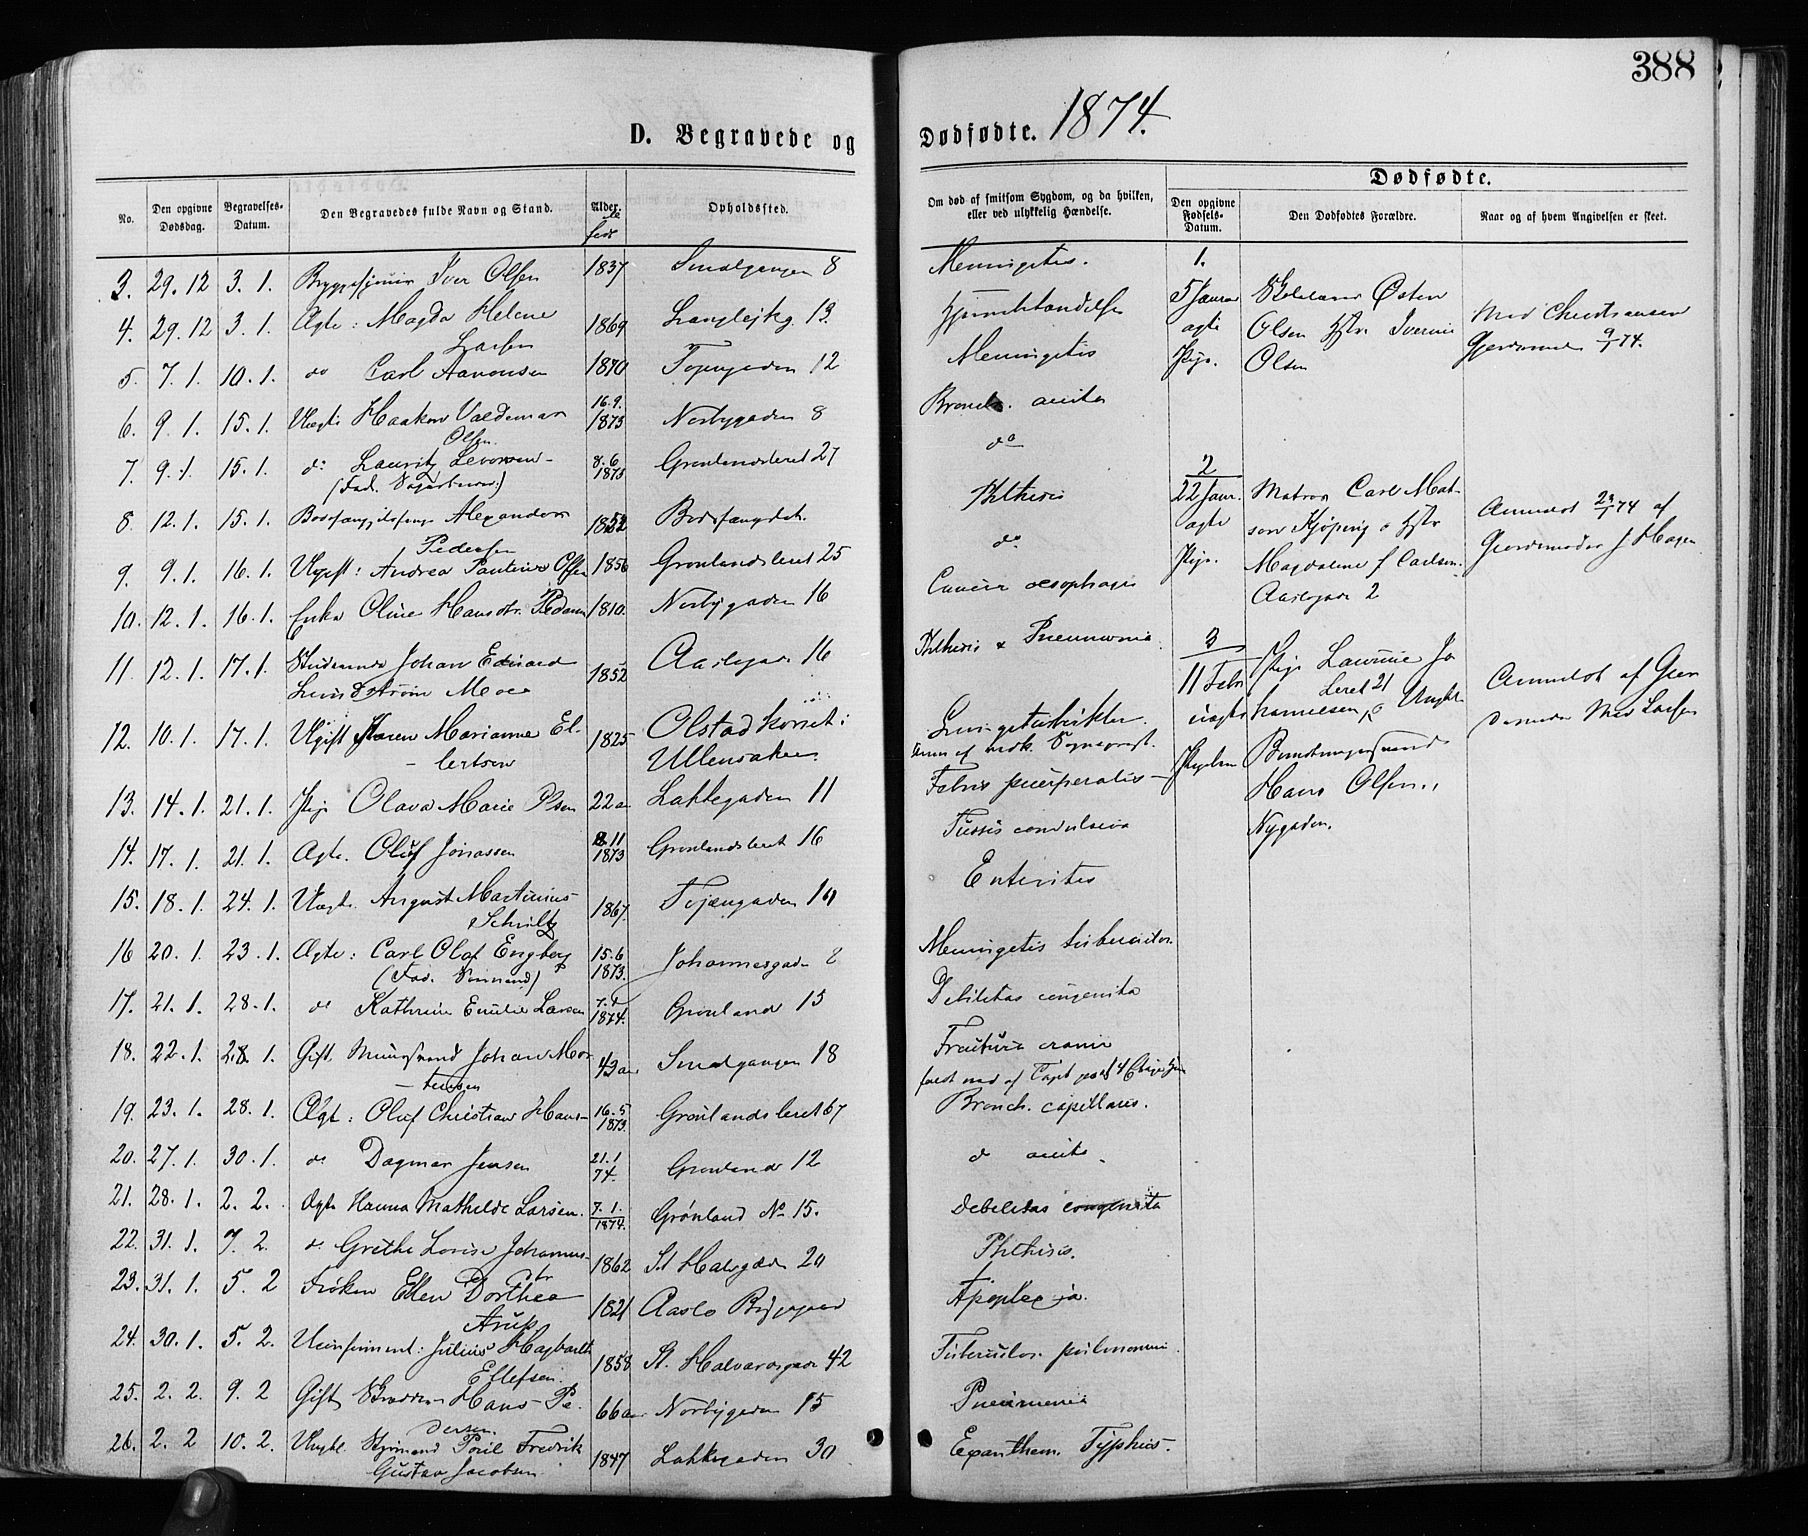 388
D. Begravede og Dødfødte. 1874.
No.
Den opgivne Dødsdag.
Begravelses-Datum.
Den Begravedes fulde Navn og Stand.
Alder.
født
Opholdssted.
Om død af smitsom Sygdom, og da hvilken, eller ved ulykkelig Hændelse.
Dødfødte.
Den opgivne Fødsels-Datum.
Den Dødfødtes Forældre.
Naar og af hvem Angivelsen er skeet.
3. 29.12 3.1. Iver Olsen 1837 Smalgangen 8 Meningetis.
4. 29.12 3.1. Ægte: Magda Helene Larsen 1869 Langlejkg. 13.
5. 7.1. 10.1. do Carl Aanonsen 1870 Tøyengaden 12 Meningetis
6. 9.1. 15.1. Uægte Haakon Valdemar Olsen 16.9. 1873 Norbygaden 8 Bronch. acuta
7. 9.1. 15.1. do Lauritz 8.6 1873 Grønlandsleret 27 do
8. 12.1. 15.1. Alexander Pedersen 1852 Bodsfængslet. Phthisis
9. 9.1. 16.1. Ugift: Andrea Pauline Olsen 1856 Grønlandsleret 25 do
10. 12.1. 16.1. Enke Oline Hansdtr. 1810. Norbygaden 16 Cancer oesophagi
11. 12.1. 17.1. Johan Edvard Lundstrøm Moe 1852 16 Phthisis & Pneumonia
12. 10.1. 17.1. Ugift Karen Marianne Ellertsen 1825 Olstad korset i Ullensaker.
13. 14.1. 21.1. Pige Olava Marie Olsen 22 aar Lakkegaden 11 Febris puerperalis
14. 17.1. 21.1. Ægte. Oluf Jonassen 8.11 1873 Grønlandsleret 16 Tussis convulsiva
15. 18.1. 24.1. Uægte August Martinius Schultz 1867. Tøjengaden 10 Enteritis
16 20.1. 23.1. Ægte: Carl Olaf Engberg 15.6 1873. Johannesgaden 8 Meningetis tuberculos.
17. 21.1. 28.1. do Kathrine Emilie Larsen 7.1 1874. Grønland 15 Debilitas congenita
18. 22.1. 28.1. Gift. Johan Mortensen 43 aar Smalgangen 18 Fractura cranii
19. 23.1. 28.1. Ægte: Oluf Christian Hans- 16.5 1873. Grønlandsleret 67 Bronch. capillaris.
20. 27.1. 30.1. do Dagmar Jensen 21.1 74. Grønland 12 do acuta
21. 28.1. 2.2. Ægte Hanna Mathilde Larsen. 7.1. 1874. Grønland No 15. Debilitas congenita
22. 31.1. 7.2. do Grethe Lovise Johannesdtr 1862 St Halvgaden 20 Phthisis.
23. 31.1. 5.2 Frøken Ellen Dorthea Arup 1821 Aaslo Bispegaard Apoplexia.
24. 30.1. 5.2. Ukonfirmert: Julius Hagbarth Ellefsen. 1858 St. Halvardsgade 42 Tuberculos. pulmonum.
25. 2.2. 9.2 Gift Hans Pedersen 66 aar Norbygaden 15 Pneumonia
26. 2.2 10.2. Ungkl Styrmand Poul Fredrik Gustav Jacobsen 1847 Lakkegaden 30 Exanthem. Typhus.
1.
5 Januar
ægte
Pige.
Østen
Olsen Hstr. Iverine
Olsen
Mad Christiansen
Gjordemoder 9/1 74.
2
22 Janr.
ægte
Pige.
Matros Carl Matson Kjøping & Hstr
Magdalene f Carlson.
2
Anmeldt 23/1 74 af
Gjordemoder J Hagen
3
11 Febr
uægte
Pige Laurine Johannesen, Leret 21 & Ungkl
Hans Olsen,
Nygaden.
Anmeldt af Gjordemoder Mad Larsen